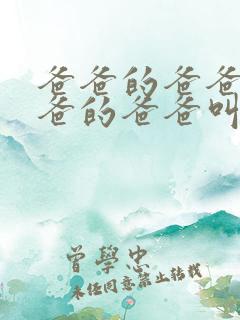 爸爸的爸爸
爸的爸爸叫
曾學忠
未经同意禁止转载